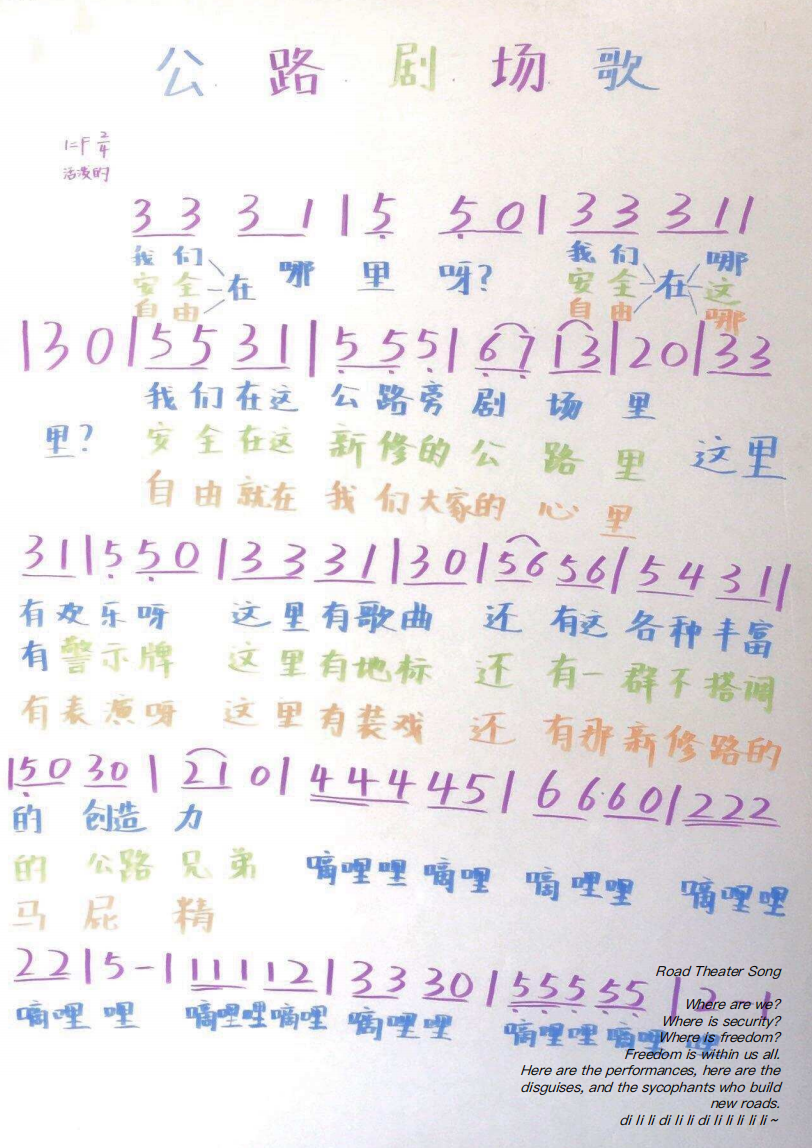 公 路 剧 场 歌
1=F 2/4
活泼的
3 3 3 1 | 5 5 0 | 3 3 3 1 |
我们 安全 自由 在 哪 里 呀? 我们 安全 自由 在 哪 这 哪
| 3 0 | 5 5 3 1 | 5 5 5 | 6 7 1 3 | 2 0 | 3 3
我们在这 公路旁 剧 场 里
里? 安全在这 新修的公 路 里 这里
自由就在 我们大家的 心 里
3 1 | 5 5 0 | 3 3 3 1 | 3 0 | 5 6 5 6 | 5 4 3 1 |
有欢乐呀 这里有歌曲 还 有这 各种丰富
有警示牌 这里有地标 还 有一 群不搭调
有表演呀 这里有装戏 还 有那新修路的
| 5 0 3 0 | 2 1 0 | 4 4 4 4 5 | 6 6 6 0 | 2 2 2
的 创造 力
的 公路 兄弟 嘀哩哩 嘀哩 嘀哩哩 嘀哩哩
马 屁 精
2 2 | 5 - | 1 1 1 1 2 | 3 3 3 0 | 5 5 5 5 5 | 2 - |
嘀哩 哩 嘀哩哩嘀哩 嘀哩哩 嘀哩哩嘀哩 哩
Road Theater Song
Where are we?
Where is security?
Where is freedom?
Freedom is within us all.
Here are the performances, here are the
disguises, and the sycophants who build
new roads.
di li li di li li di li li li li li ~